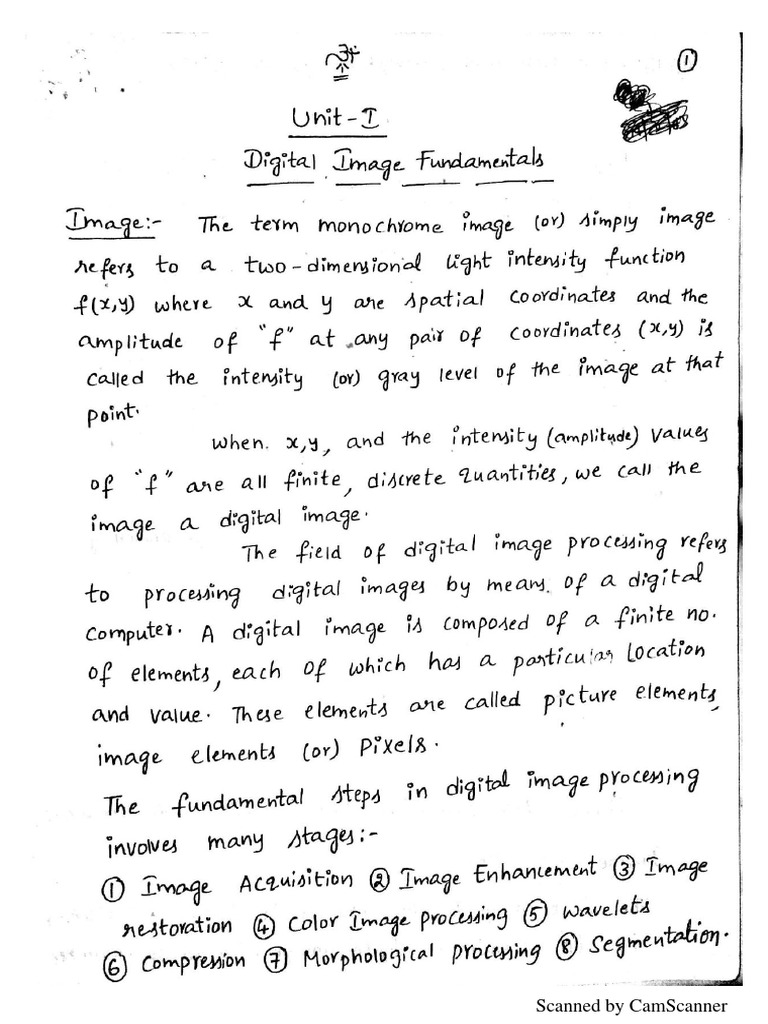 ①
Unit-I
Digital Image Fundamentals
Image:- The term monochrome image (or) simply image
refers to a two-dimensional light intensity function
f(x,y) where x and y are spatial coordinates and the
amplitude of "f" at any pair of coordinates (x,y) is
called the intensity (or) gray level of the image at that
point.
when. x,y, and the intensity (amplitude) values
of "f" are all finite, discrete quantities, we call the
image a digital image.
The field of digital image processing refers
to processing digital images by means. of a digital
computer. A digital image is composed of a finite no.
of elements, each of which has a particular location
and value. These elements are called picture elements,
image elements (or) Pixels.
The fundamental steps in digital image processing
involves many stages:-
① Image Acquisition ② Image Enhancement ③ Image
restoration ④ Color Image processing ⑤ wavelets
⑥ Compression ⑦ Morphological processing ⑧ Segmentation.
Scanned by CamScanner